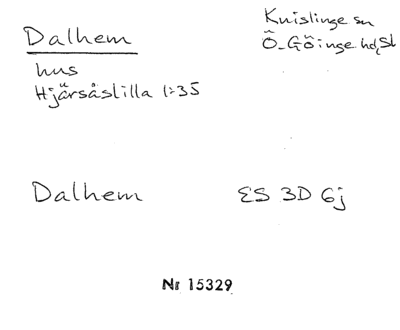 Dalhem
Knislinge sn
Ö-Göinge hd, Sk
hus
Hjärsåslilla 1:35
Dalhem
ES 3D 6j
Nr 15329